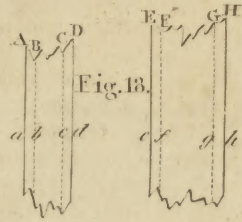 A B C D
E F G H
Fig. 18.
a b c d
e f g h